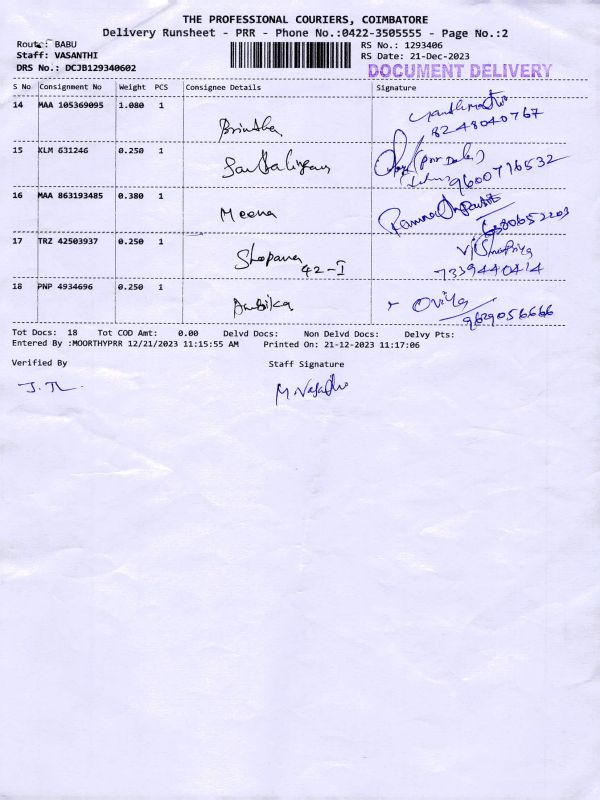 THE PROFESSIONAL COURIERS, COIMBATORE
Delivery Runsheet - PRR - Phone No.:0422-3505555 - Page No.:2
Route: BABU RS No.: 1293406
Staff: VASANTHI RS Date: 21-Dec-2023
DRS No.: DCJB129340602 DOCUMENT DELIVERY
S No Consignment No Weight PCS Consignee Details Signature
14 MAA 105369095 1.080 1
Brintha 8248040767
15 KLM 631246 0.250 1
9600796532
16 MAA 863193485 0.380 1
Meena
17 TRZ 42503937 0.250 1
Shopana 42-I 7339440414
18 PNP 4934696 0.250 1
Ambika Oviya
9629056666
Tot Docs: 18 Tot COD Amt: 0.00 Delvd Docs: Non Delvd Docs: Delvy Pts:
Entered By :MOORTHYPRR 12/21/2023 11:15:55 AM Printed On: 21-12-2023 11:17:06
Verified By Staff Signature